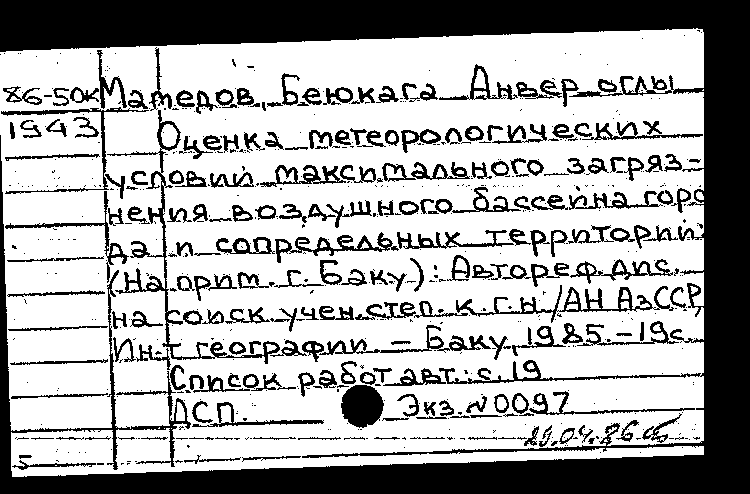 86-50к Маmедов, Беюкага Анвер оглы
1943 Оценка метеорологических
условий максимального загряз-
нения воздушного бассейна горо
да и сопредельных территорий:
(На прим. г. Баку): Автореф. дис.
на соиск. учен. степ. к. г. н. / АН АзССР,
Ин-т географии. – Баку, 1985. – 19с.
Список работ авт.: с. 19
ДСП. Экз. N 0097
29.04.86
5